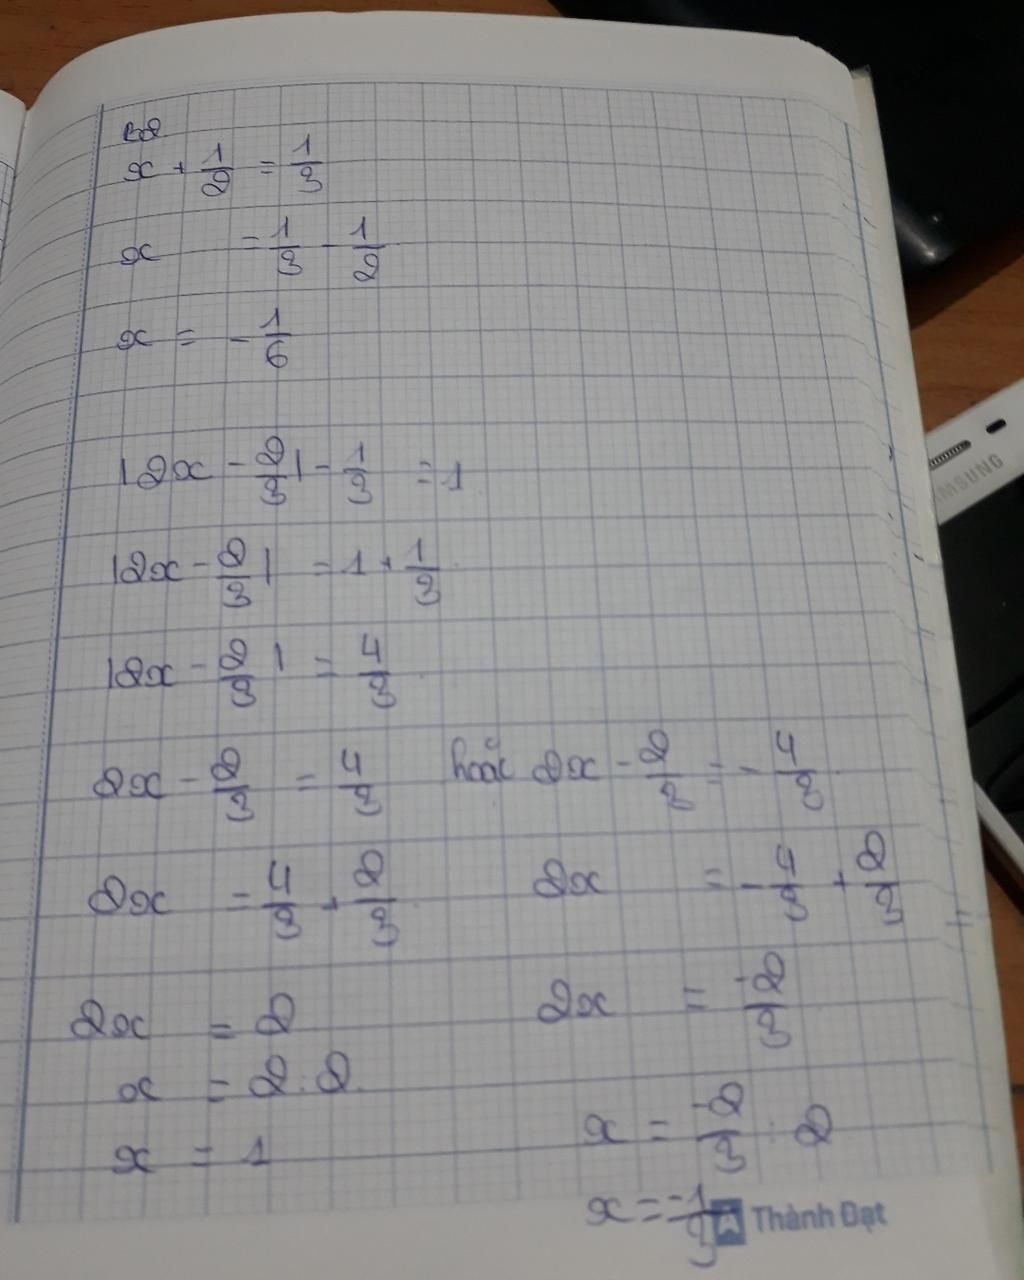 B2
x + 1/2 = 1/3
x = 1/3 - 1/2
x = - 1/6
|2x - 2/3| - 1/3 = 1
|2x - 2/3| = 1 + 1/3
|2x - 2/3| = 4/3
2x - 2/3 = 4/3 hoặc 2x - 2/3 = - 4/3
2x = 4/3 + 2/3 2x = - 4/3 + 2/3
2x = 2 2x = -2/3
x = 2 : 2 x = -2/3 : 2
x = 1 x = -1/3
Thành Đạt
SAMSUNG